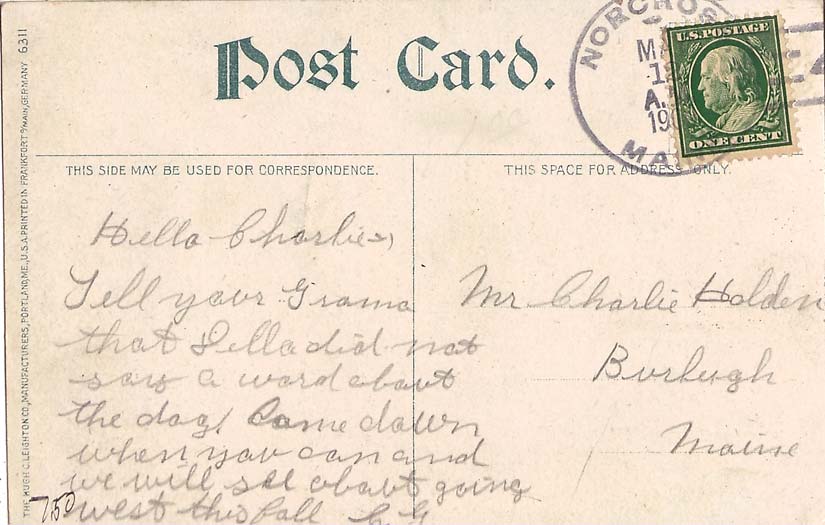 Post Card.
NORCROSS
MA
1
A.
19
MA
U.S. POSTAGE
ONE CENT
THIS SIDE MAY BE USED FOR CORRESPONDENCE.
THIS SPACE FOR ADDRESS ONLY.
Hello Charlie
Tell your Grama
that Della did not
say a word about
the dog, Come down
when you can and
we will see about going
west this fall
Mr Charlie Holden
Burleugh
Maine
THE HUGH C. LEIGHTON CO., MANUFACTURERS, PORTLAND, ME., U.S.A. PRINTED IN FRANKFORT o/MAIN, GERMANY 6311
750